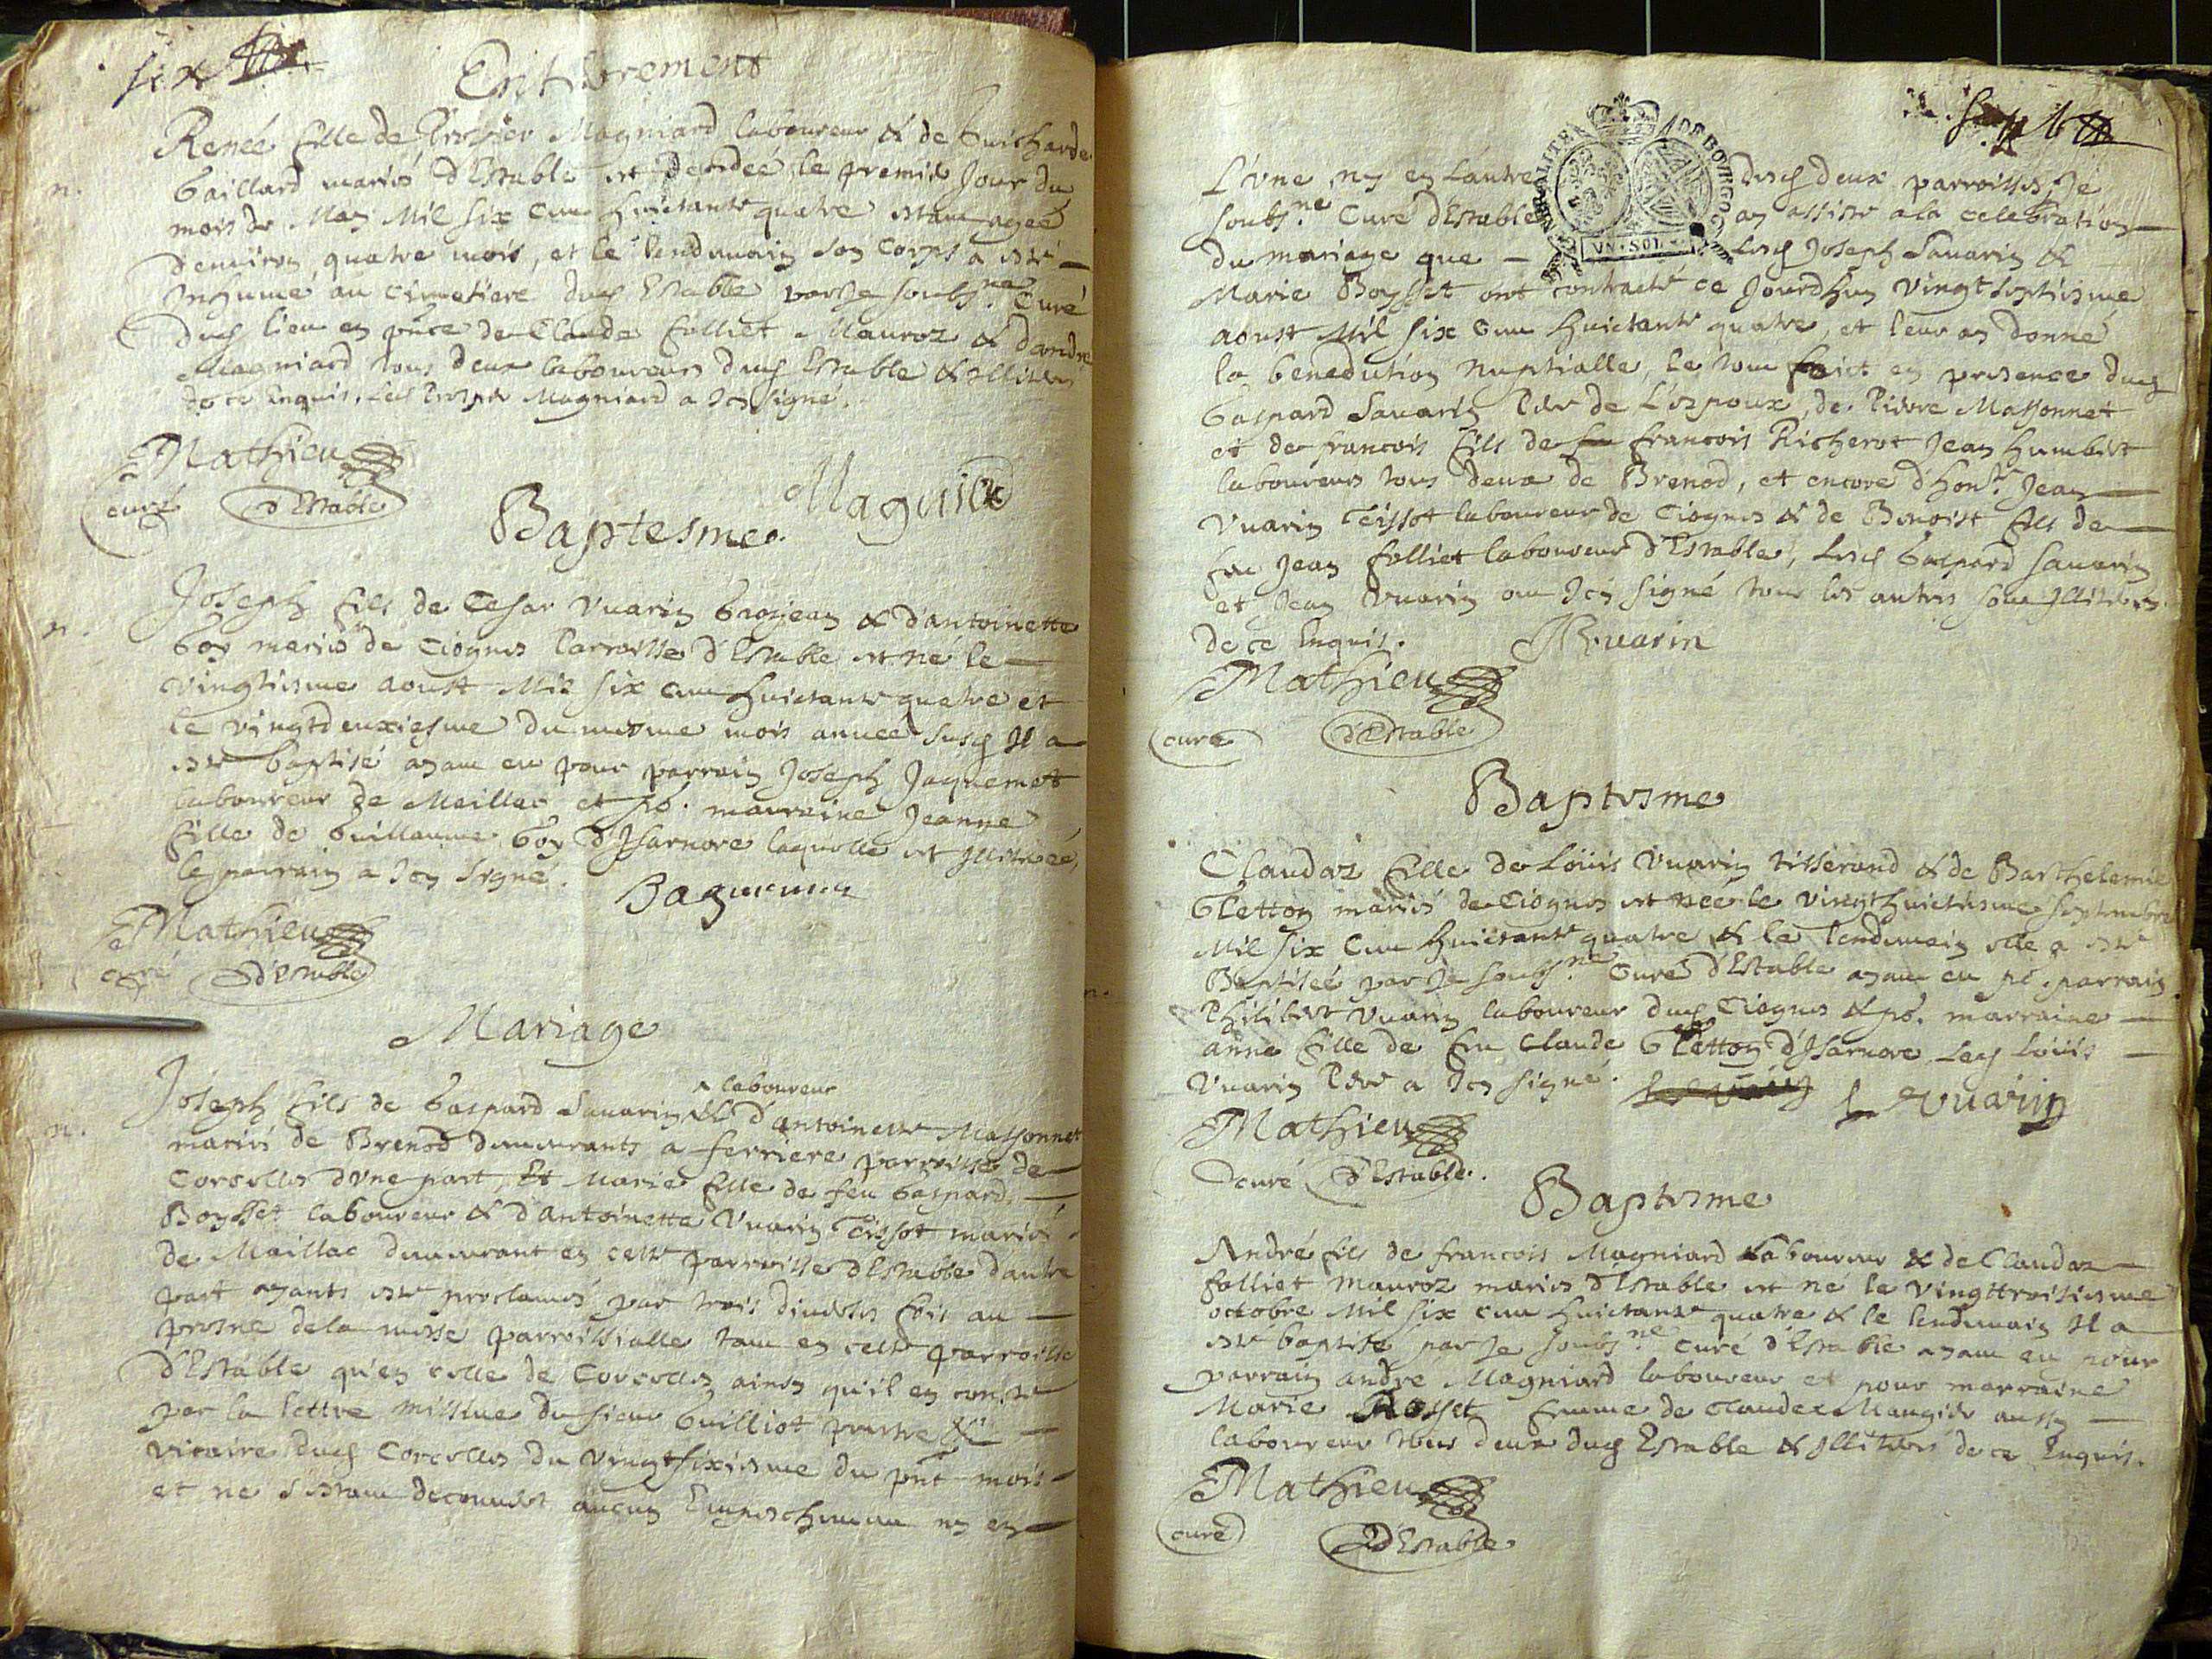 six
Enterrement
Reneé fille de Prosper Magniard laboureur & de Guicharde
Gaillard mariés d'Estable est decedeé le premier Jour du
n.
mois de May Mil six cent huictante quatre estant ageé
denviron quatre mois, et le lendemain son corps a esté
Inhumé au cimetiere dud Estable par Je soubs.né Curé
dud lieu en pñce de Claude folliet Mauroz & dandré
Magniard tous deux laboureurs dud Estable & Illiteres
de ce Enquis. Led Prosper Magniard a Icy signé.
Mathieu
curé d'Estable
Magnie
Baptesme.
Joseph fils de Cesar Vuarin Grosjean & d'antoinette
n.
Goy mariés de Ciognes Parroisse d'Estable est né le
vingtiesme aoust Mil six cent huictante quatre et
le vingtdeuxiesme du mesme mois anneé susd Il a
esté baptisé ayant eu pour parrain Joseph Jaquemet
laboureur de Maillac et po.r marreine Jeanne
fille de Guillaume Goy d'Isarnore laquelle est Illitereé,
le parrain a Icy signé.
Jaquemet
Mathieu
curé d'Estable
Mariage
^ laboureur
Joseph fils de Gaspard Savarin & d'antoinette Massonnet
n.
mariés de Brenod demeurants a ferriere parroisse de
Corcelles d'vne part, Et Marie fille de feu Gaspard
Boysset laboureur & d'antoinette Vuarin Teissot mariés
de Maillac demeurant en ceste parroisse d'Estable dautre
part ayants esté proclamés par trois diverses fois au
prosne de la messe parroissialle tant en ceste parroisse
d'Estable qu'en celle de Corcelles ainsy qu'il en conste
par la lettre missive du sieur Guilliot prestre &
vicaire dud Corcelles du vingtsixiesme du pñt mois
et ne s'estant decouvert aucun Empeschement ny en
sept
GENERALITE DE BORGOGNE
VN·SOL·
L'vne, ny en L'autre desd deux parroisses, Je
soubs.né Curé d'Estable ay assisté a la celebration
du mariage que lesd Joseph Savarin &
Marie Boysset ont contracté ce Jourdhuy vingtseptiesme
aoust Mil six cent huictante quatre, et leur ay donné
la benediction Nuptialle, le tout faict en presence dud
Gaspard Savarin Pere de L'espoux, de Pierre Massonnet
et de francois fils de francois Richerot Jean humbert
laboureurs tous deux de Brenod, et encore d'hon.te Jean
Vuarin Teissot laboureur de Ciognes & de Benoist fils de
feu Jean folliet laboureur d'Estable, Lesd Gaspard Savarin
et Jean Vuarin ont Icy signé tous les autres sont Illiteres
de ce Enquis.
J Vuarin
Mathieu
curé d'Estable
Baptesme
Claudaz fille de Loüis Vuarin tisserand & de Barthelemie
Gletton mariés de Ciognes est neé le vingthuictiesme septembre
Mil six cent huictante quatre & le lendemain elle a esté
n.
Baptiseé par Je soubs.né Curé d'Estable ayant eu po.r parrain
Philibert Vuarin laboureur dud Ciognes & po.r marraine
anne fille de feu Claude Gletton d'Isarnore Led Loüis
Vuarin Pere a Icy signé.
L Vuarin
Mathieu
curé d'Estable.
Baptesme
André fils de francois Magniard Laboureur & de Claudaz
folliet Mauroz mariés d'Estable est né le vingttroisiesme
octobre Mil six cent huictante quatre & le lendemain Il a
esté baptisé par Je soubs.né Curé d'Estable ayant eu pour
parrain andré Magniard laboureur et pour marraine
Marie Rosset femme de claude Maugier aussy
laboureur tous deux dud Estable & Illiteres de ce Enquis.
Mathieu
curé d'Estable